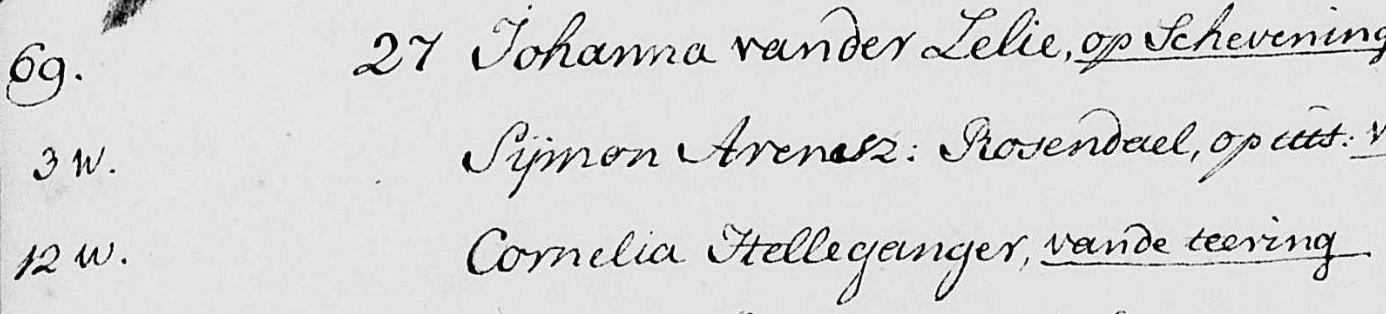 69. 27 Johanna vander Lelie, op Schevening
3 w. Sijmon Arensz: Rosendael, op
12 w. Cornelia Helleganger, vande teering